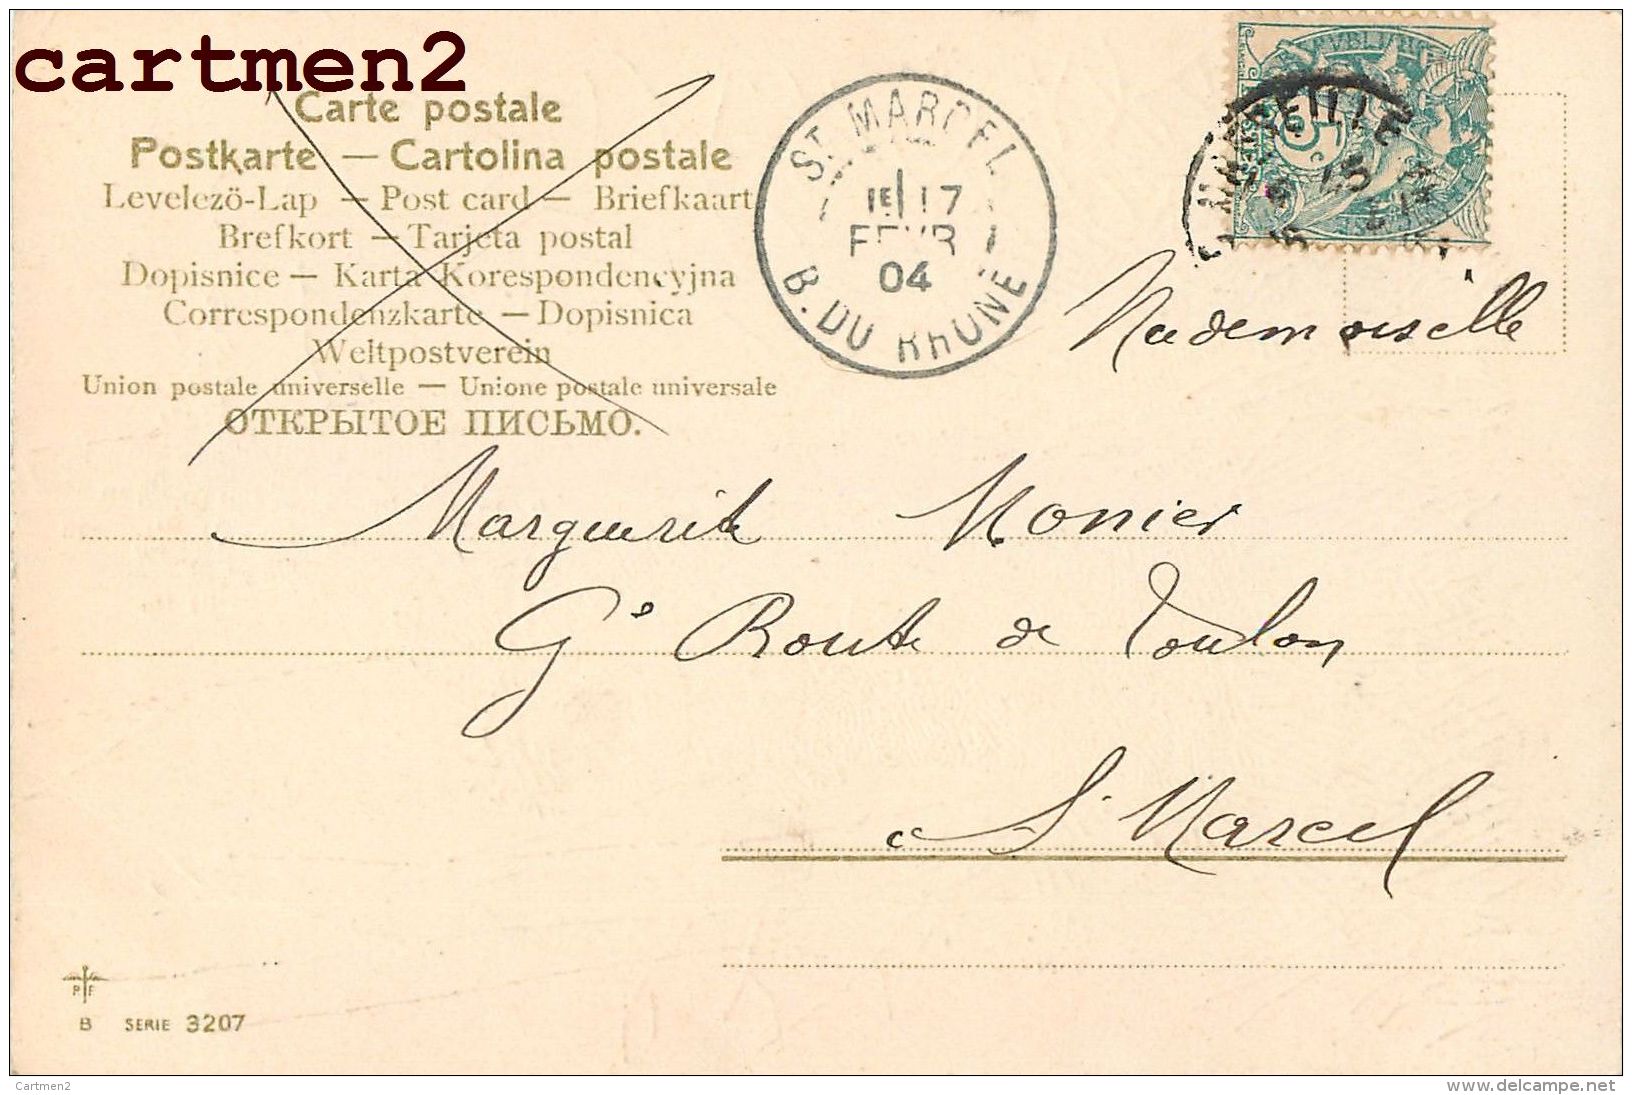 cartmen2
Carte postale
Postkarte — Cartolina postale
Levelezö-Lap — Post card — Briefkaart
Brefkort — Tarjeta postal
Dopisnice — Karta Korespondencyjna
Correspondenzkarte — Dopisnica
Weltpostverein
Union postale universelle — Unione postale universale
ОТКРЫТОЕ ПИСЬМО.
ST MARCEL
1E 17
FEVR
04
B. DU RHONE
MARSEILLE
Mademoiselle
Marguerite Monier
Gde Route de Toulon
à St Marcel
P F
B SERIE 3207
Cartmen2
delcampe.net